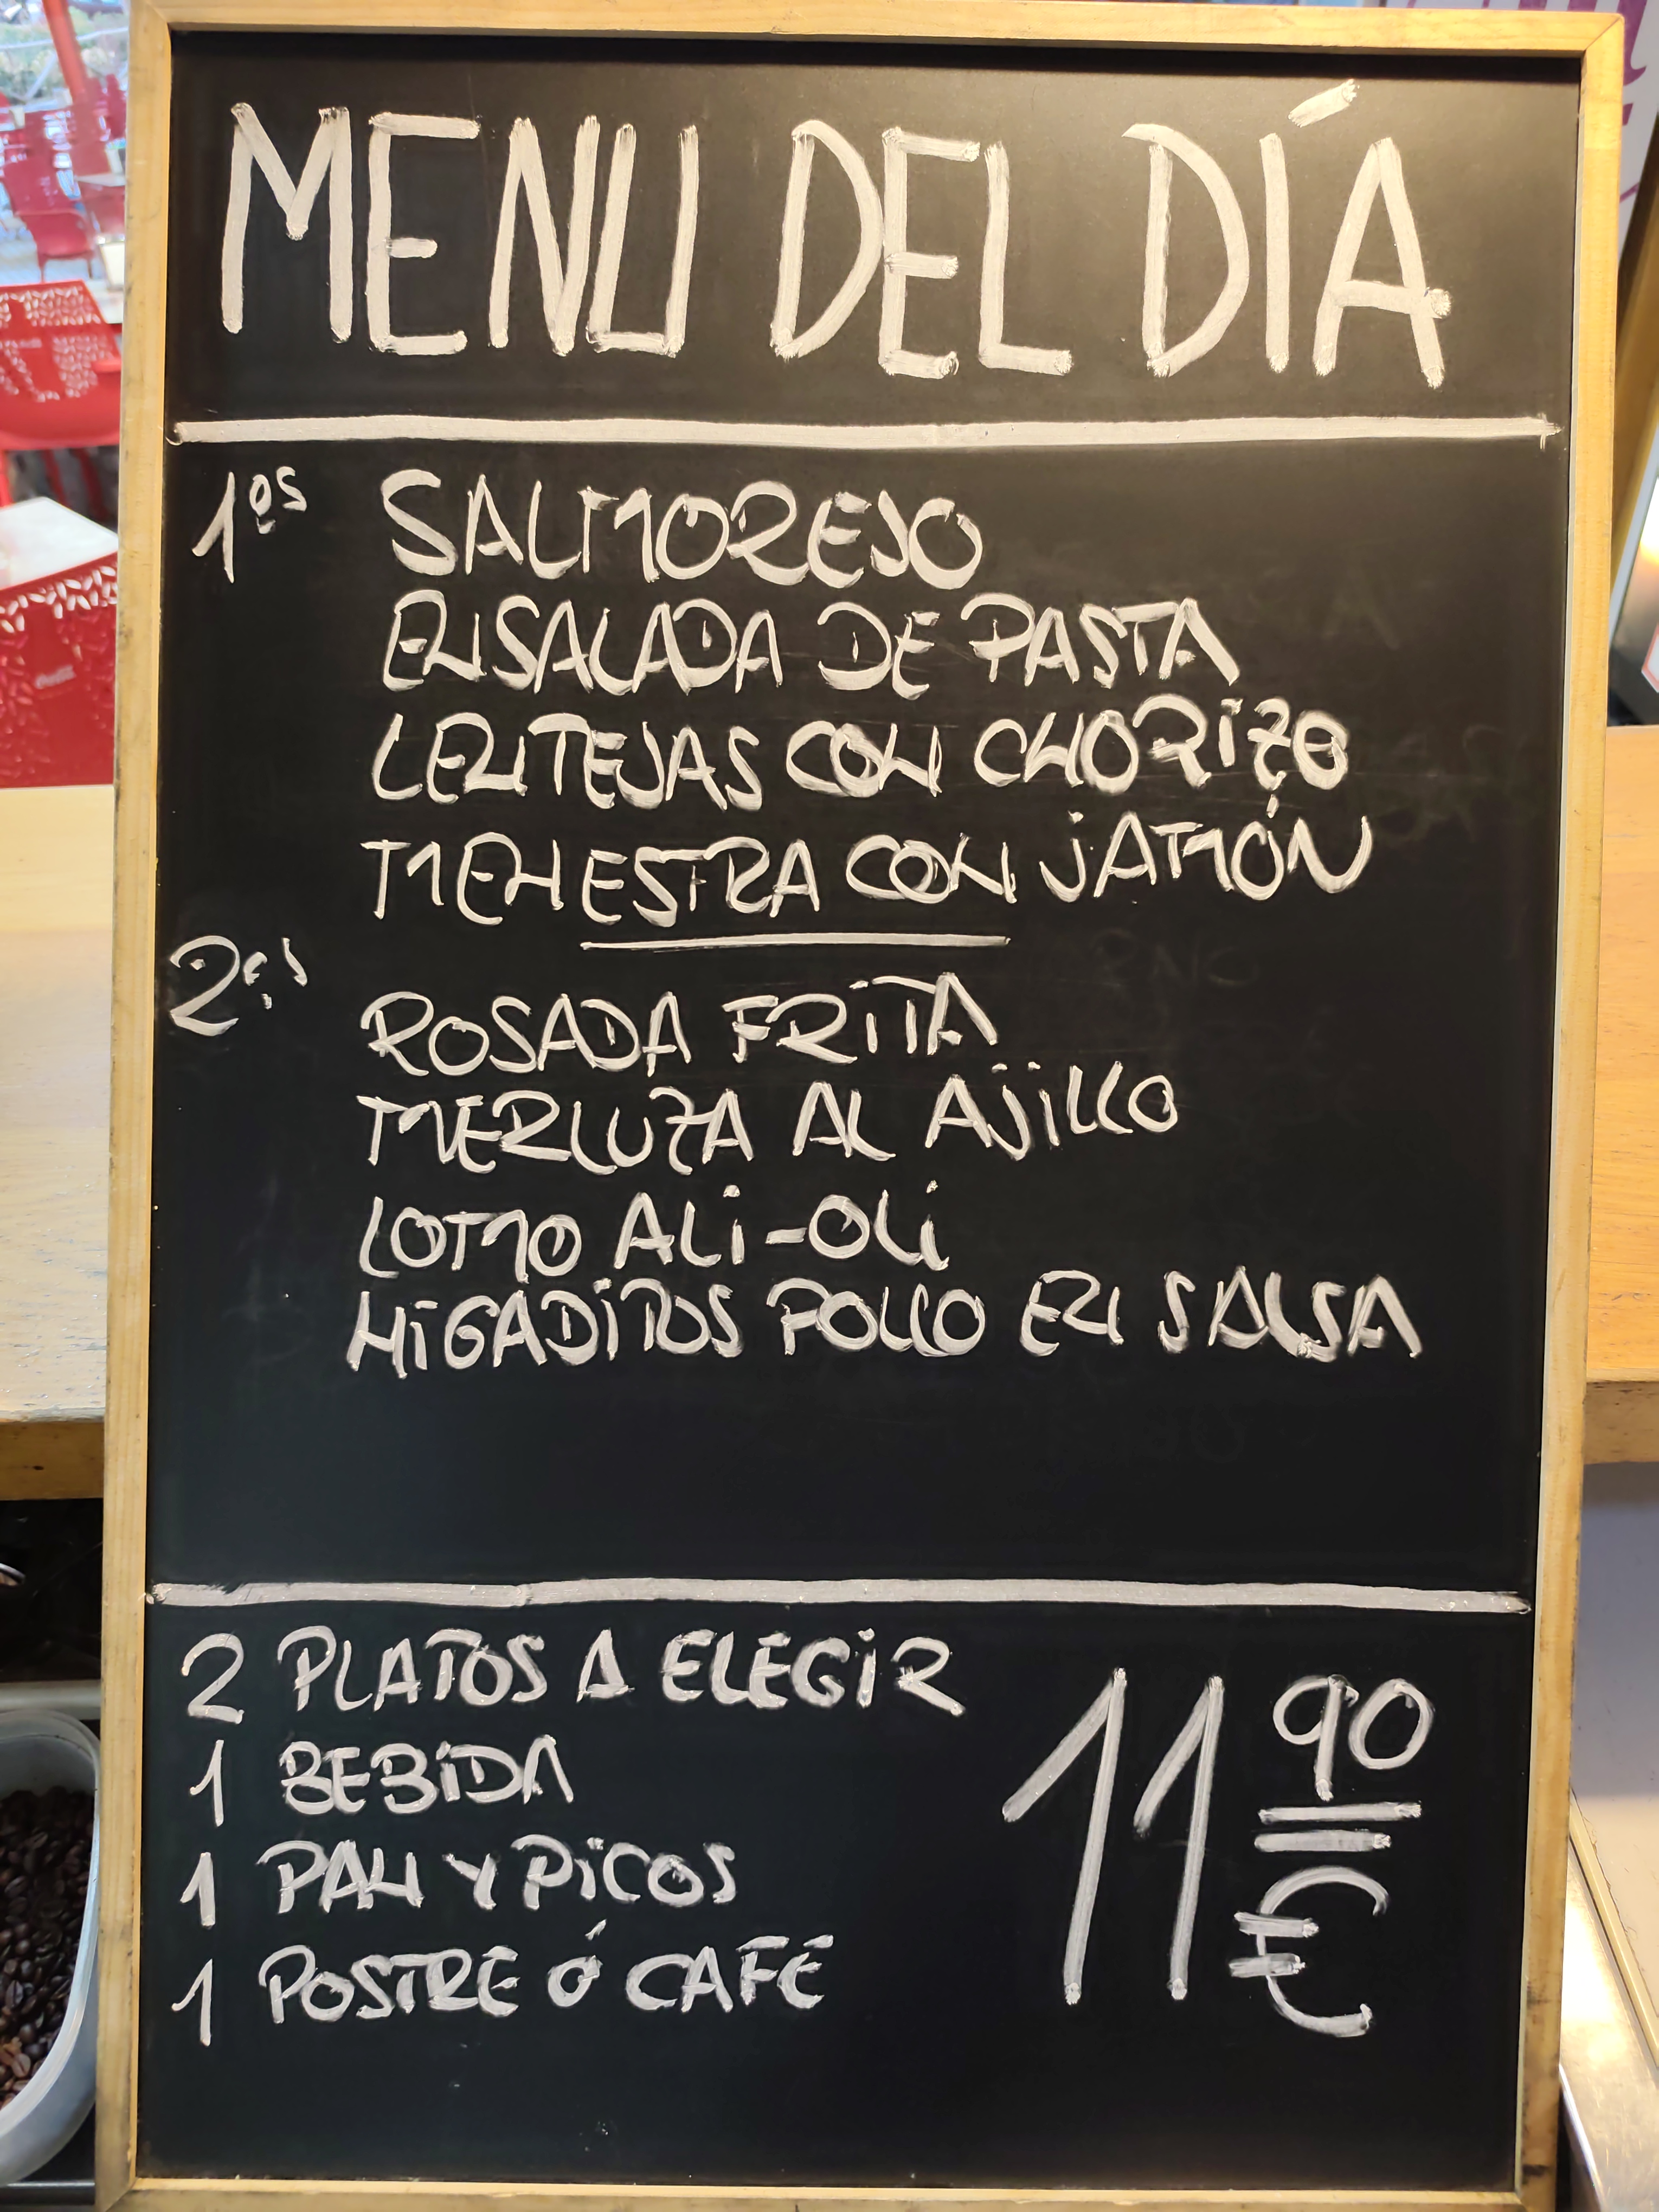 MENU DEL DÍA
1os SALMOREJO
ENSALADA DE PASTA
LENTEJAS CON CHORIZO
MENESTRA CON JAMÓN
2os
ROSADA FRITA
MERLUZA AL AJILLO
LOMO ALI-OLI
HIGADITOS POLLO EN SALSA
2 PLATOS A ELEGIR
1 BEBIDA
1 PAN Y PICOS
1 POSTRE Ó CAFÉ
11 90 €